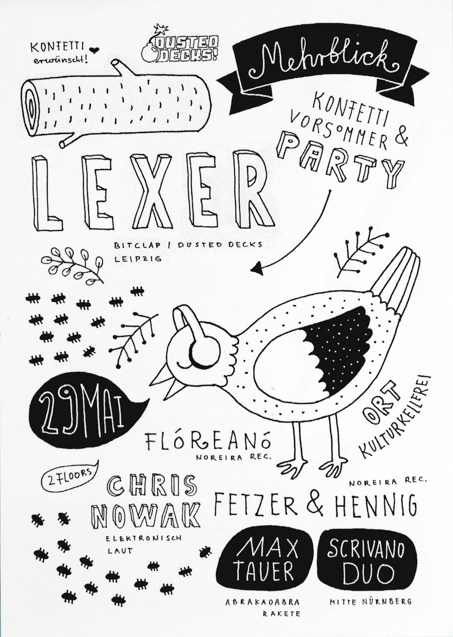 KONFETTI
erwünscht!
DUSTED
DECKS!
Mehrblick
KONFETTI
VORSOMMER &
PARTY
LEXER
BITCLAP / DUSTED DECKS
LEIPZIG
29 MAI
ORT
KULTURKELLEREI
FLÓREANÓ
NOREIRA REC.
2 FLOORS
CHRIS
NOWAK
ELEKTRONISCH
LAUT
NOREIRA REC.
FETZER & HENNIG
MAX
TAUER
ABRAKADABRA
RAKETE
SCRIVANO
DUO
MITTE NÜRNBERG